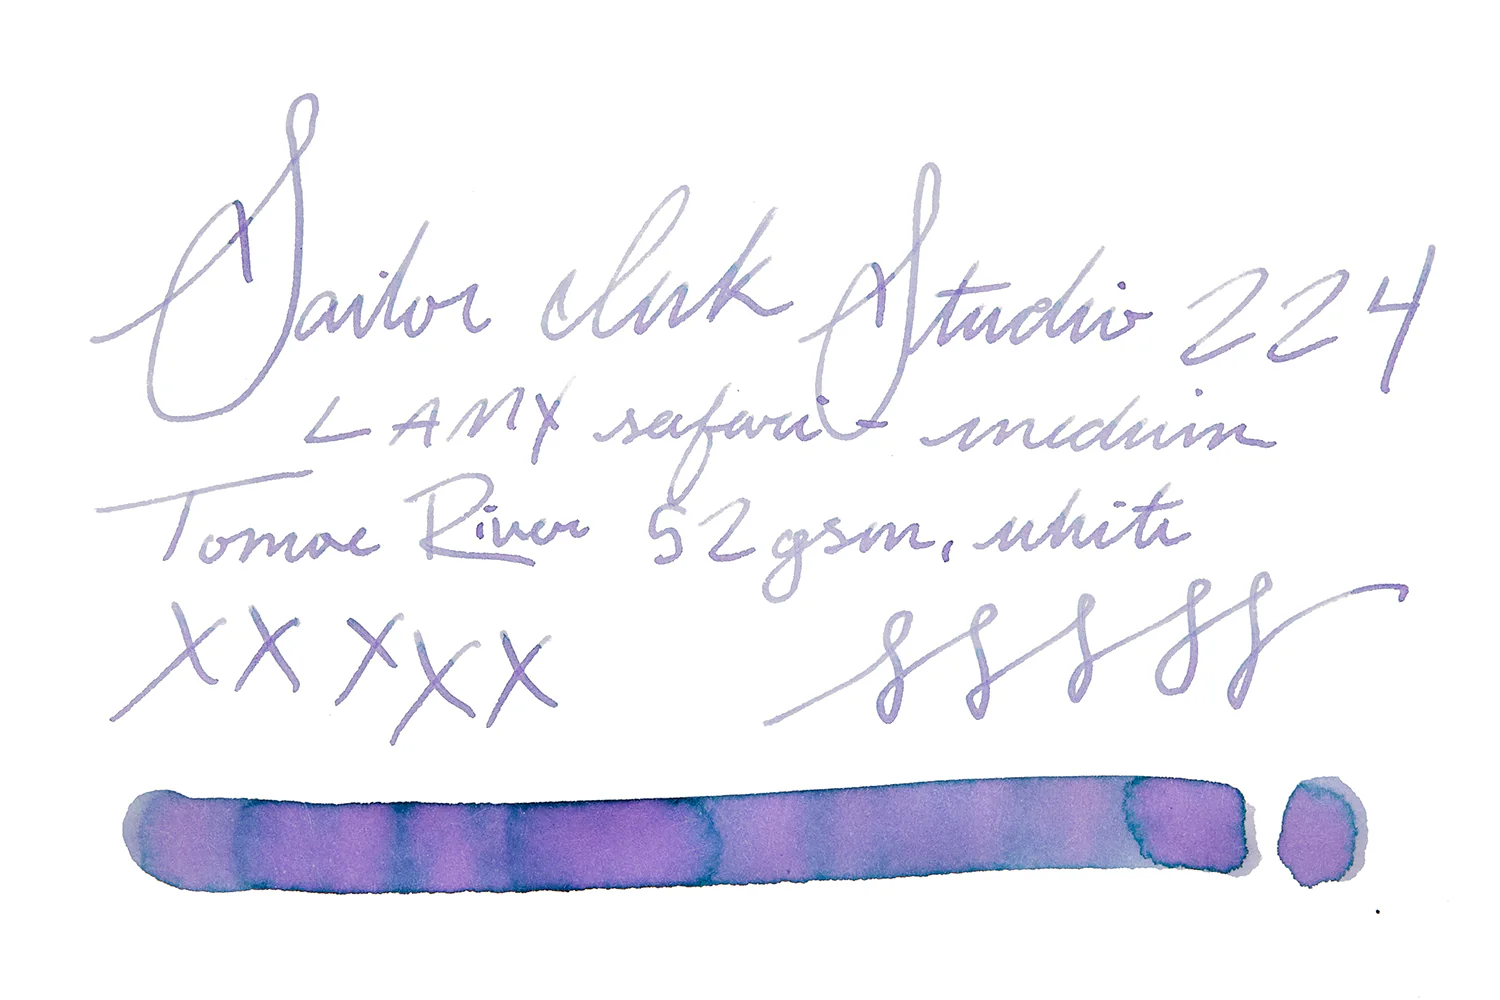 Sailor Ink Studio 224
LAMY safari - medium
Tomoe River 52gsm, white
XX XXX